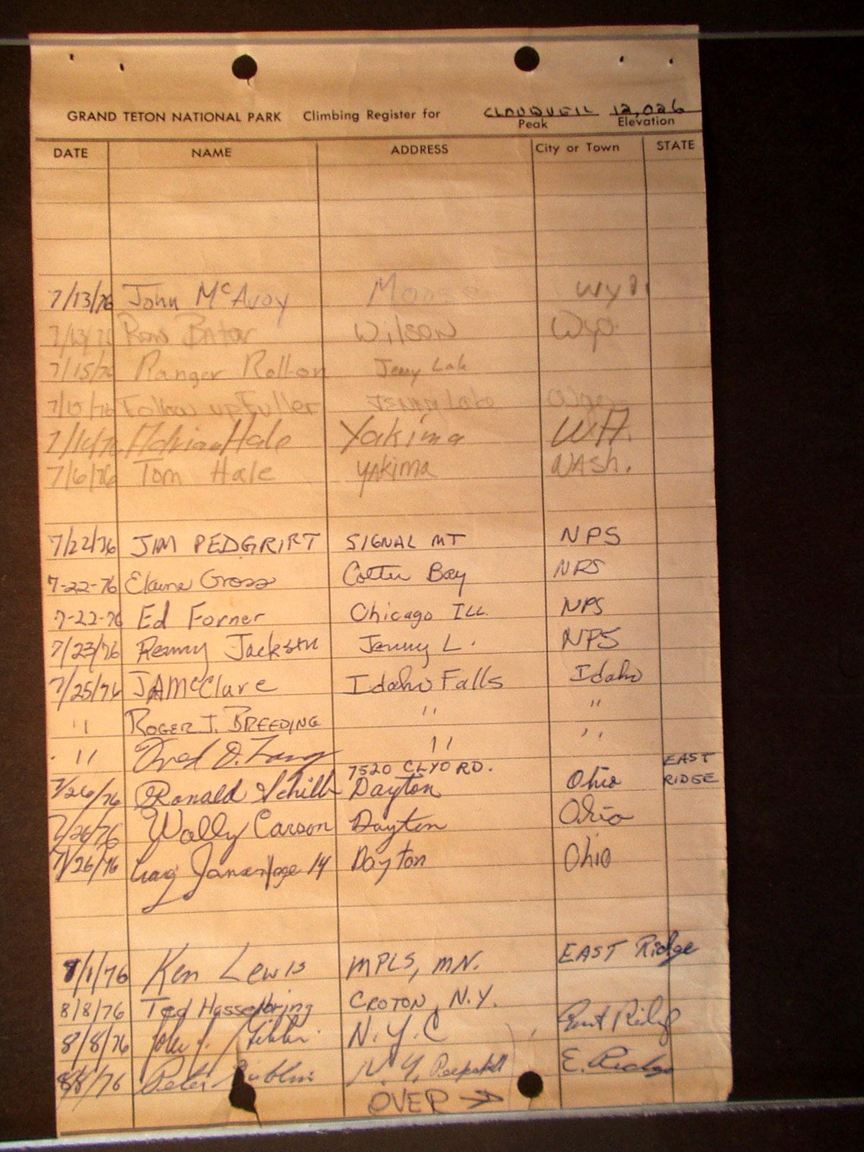 GRAND TETON NATIONAL PARK Climbing Register for 12,026
Peak Elevation
DATE NAME ADDRESS City or Town STATE
7/13/76 John McAvoy Moose Wyo
Wilson Wyo.
7/15/76 Ranger Roll-on Jenny Lak
Follow up Fuller Jenny Lake
Adrian Hale Yakima WA.
7/6/76 Tom Hale YAKIMA WASH.
7/22/76 JIM SIGNAL MT NPS
7-22-76 Elaine Gross Colter Bay NPS
7-22-76 Ed Forner Chicago ILL. NPS
7/23/76 Renny Jackson Jenny L. NPS
7/25/76 JAMcClure Idaho Falls Idaho
" ROGER J. BREEDING " "
" Fred D. "
7520 CLYO RD. EAST
7/26/76 Ronald Dayton Ohio RIDGE
7/26/76 Wally Carson Dayton Ohio
7/26/76 Craig age 14 Dayton Ohio
8/1/76 Ken Lewis MPLS, MN. EAST Ridge
8/8/76 Ted Hasselbring CROTON, N.Y.
8/8/76 John N.Y.C East Ridge
8/8/76 Peter N.Y. Peekskill E. Ridge
OVER →